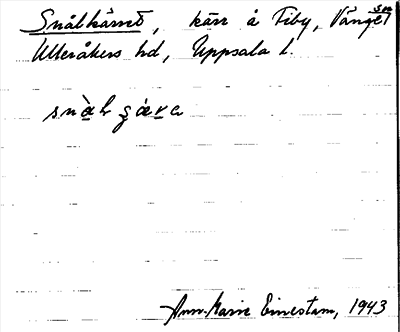 Snålkärret, kärr å Tiby, Vänge sn
Ulleråkers hd, Uppsala l.
Ann-Marie Einestam, 1943